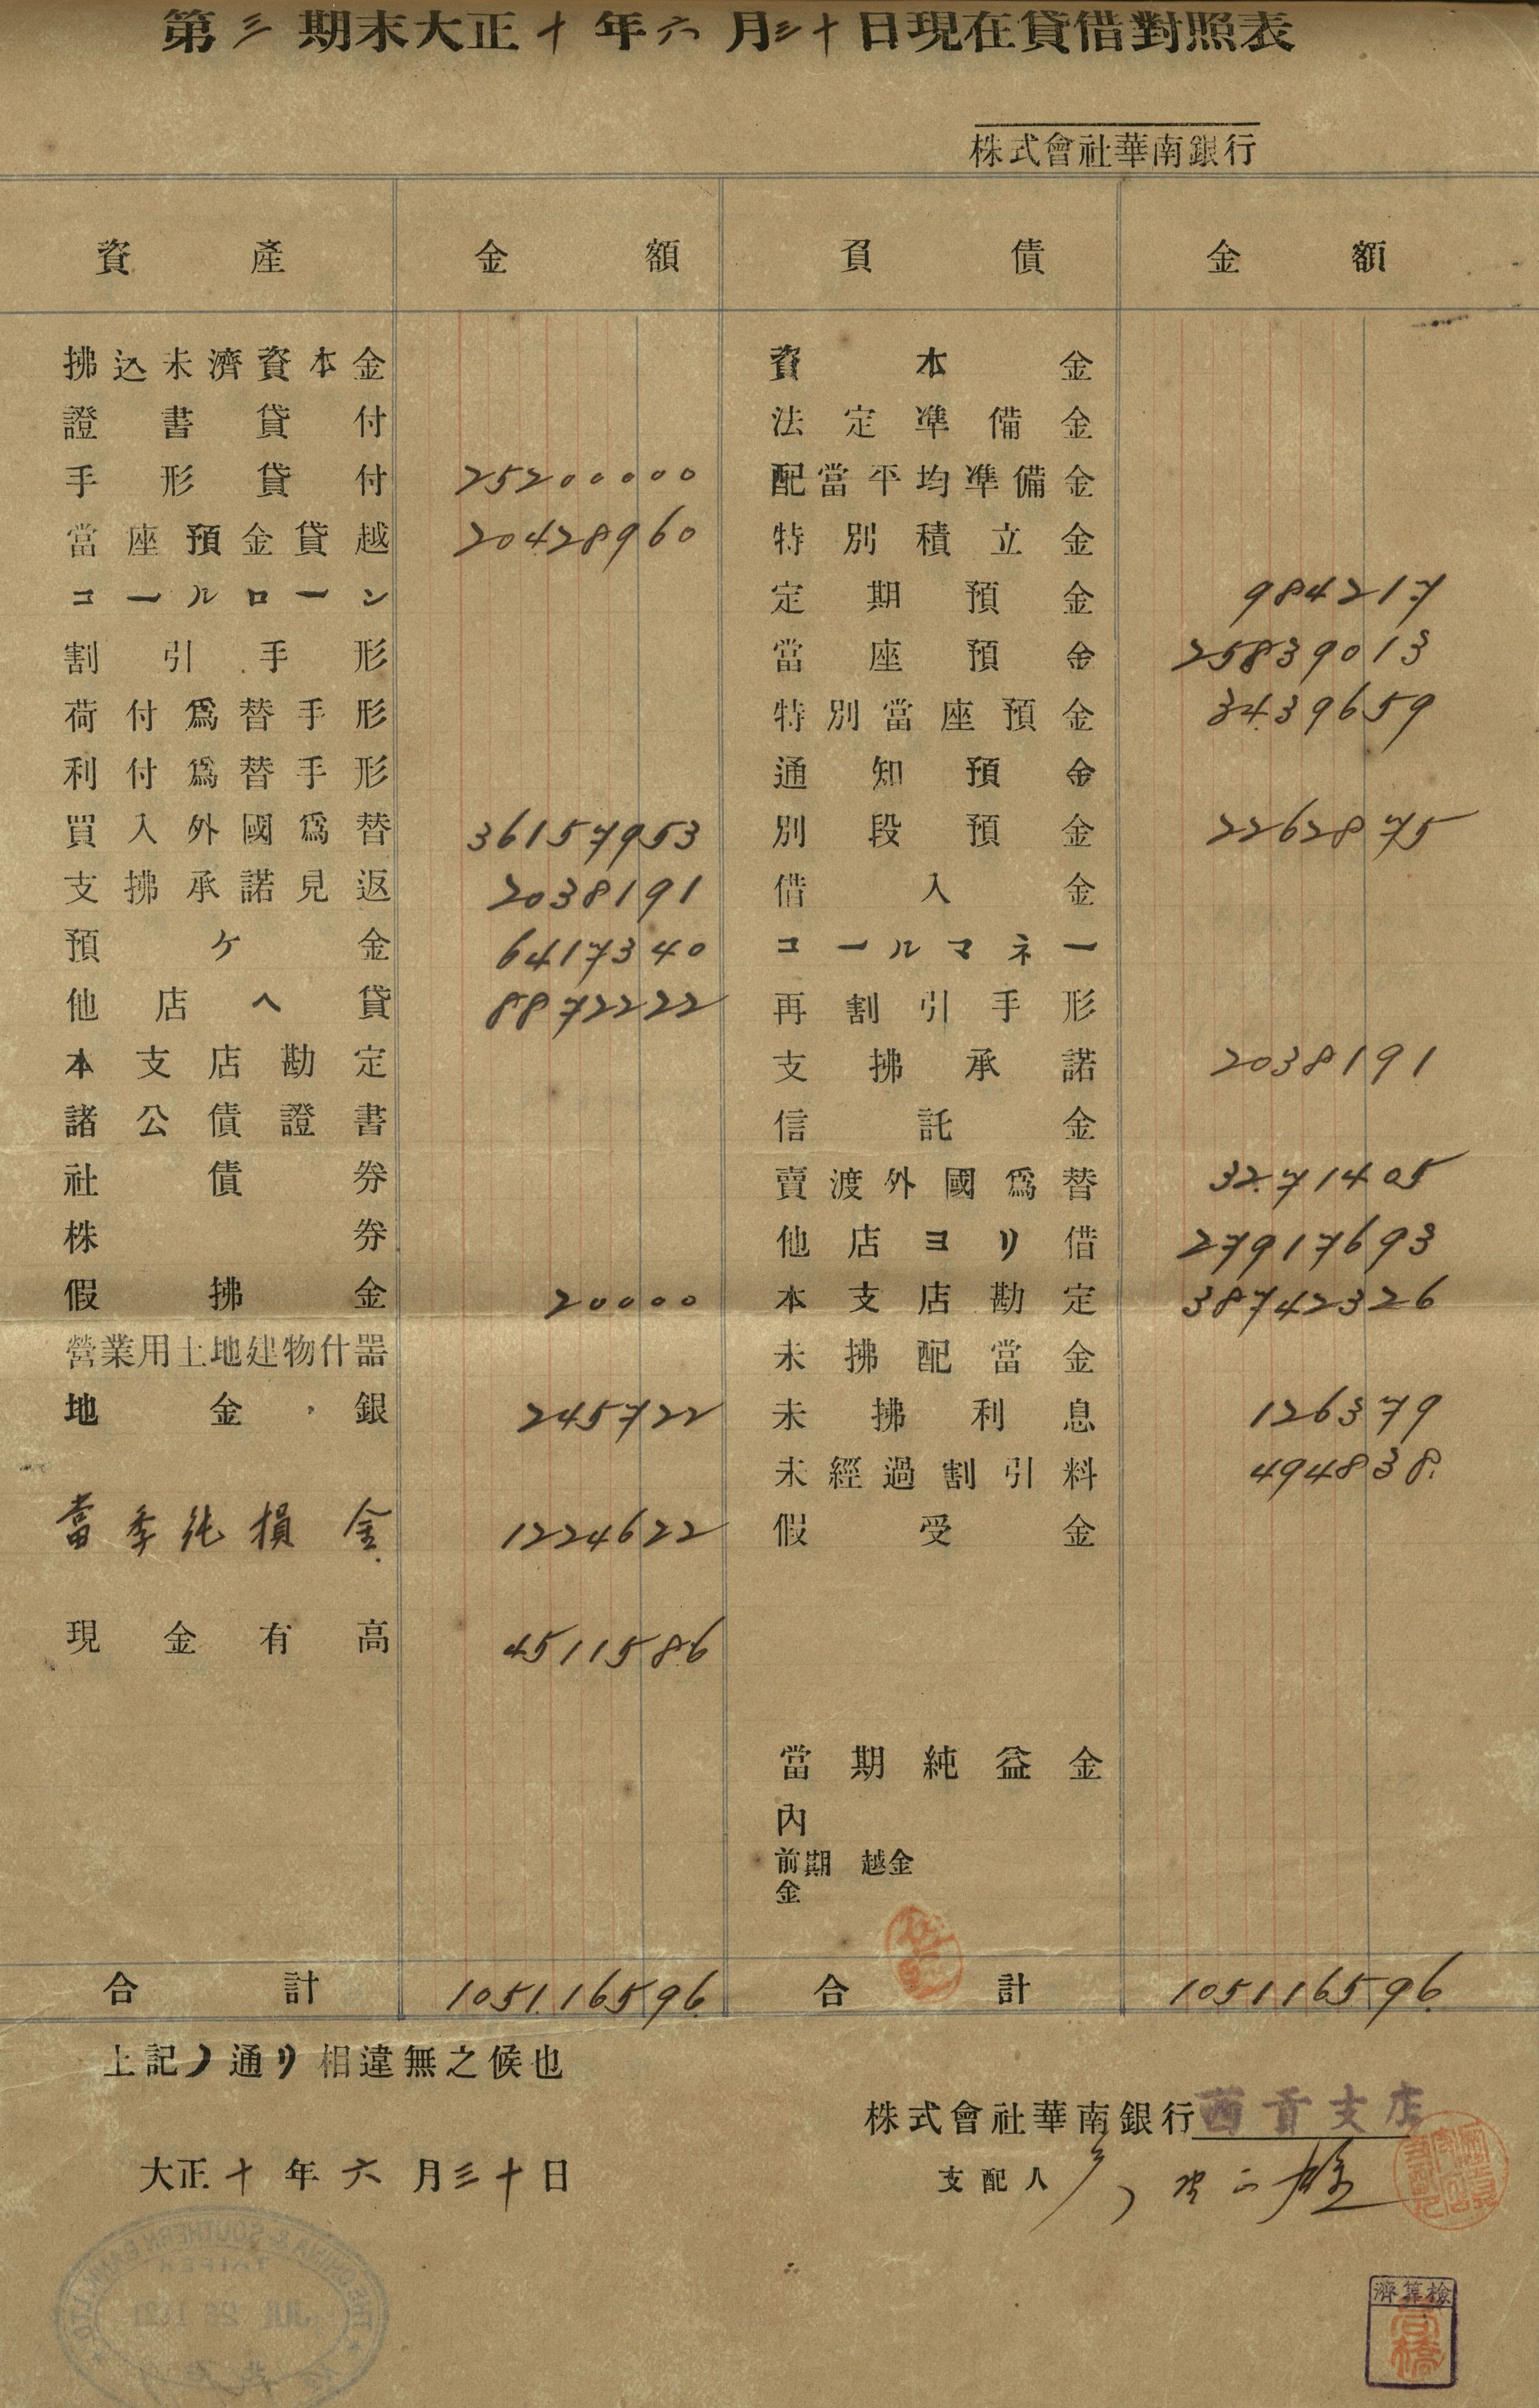 第三期末大正十年六月三十日現在貸借對照表
株式會社華南銀行
資產 金額 負債 金額
拂込未濟資本金
證書貸付
手形貸付 25200000
當座預金貸越 20428960
コールローン
割引手形
荷付爲替手形
利付爲替手形
買入外國爲替 36157953
支拂承諾見返 2038191
預ケ金 6417340
他店ヘ貸 8872222
本支店勘定
諸公債證書
社債券
株券
假拂金 20000
營業用土地建物什器
地金銀 245722
當季純損金 1224622
現金有高 4511586
合計 105116596
資本金
法定準備金
配當平均準備金
特別積立金
定期預金 984217
當座預金 25839013
特別當座預金 3439659
通知預金
別段預金 2262875
借入金
コールマネー
再割引手形
支拂承諾 2038191
信託金
賣渡外國爲替 3271405
他店ヨリ借 27917693
本支店勘定 38742326
未拂配當金
未拂利息 126379
未經過割引料 494838
假受金
當期純益金
內
前期 越金
金
合計 105116596
上記ノ通リ相違無之候也
大正十年六月三十日
株式會社華南銀行西貢支店
支配人
檢算濟
高橋
THE CHINA & SOUTHERN BANK, LTD.
TAIPEH